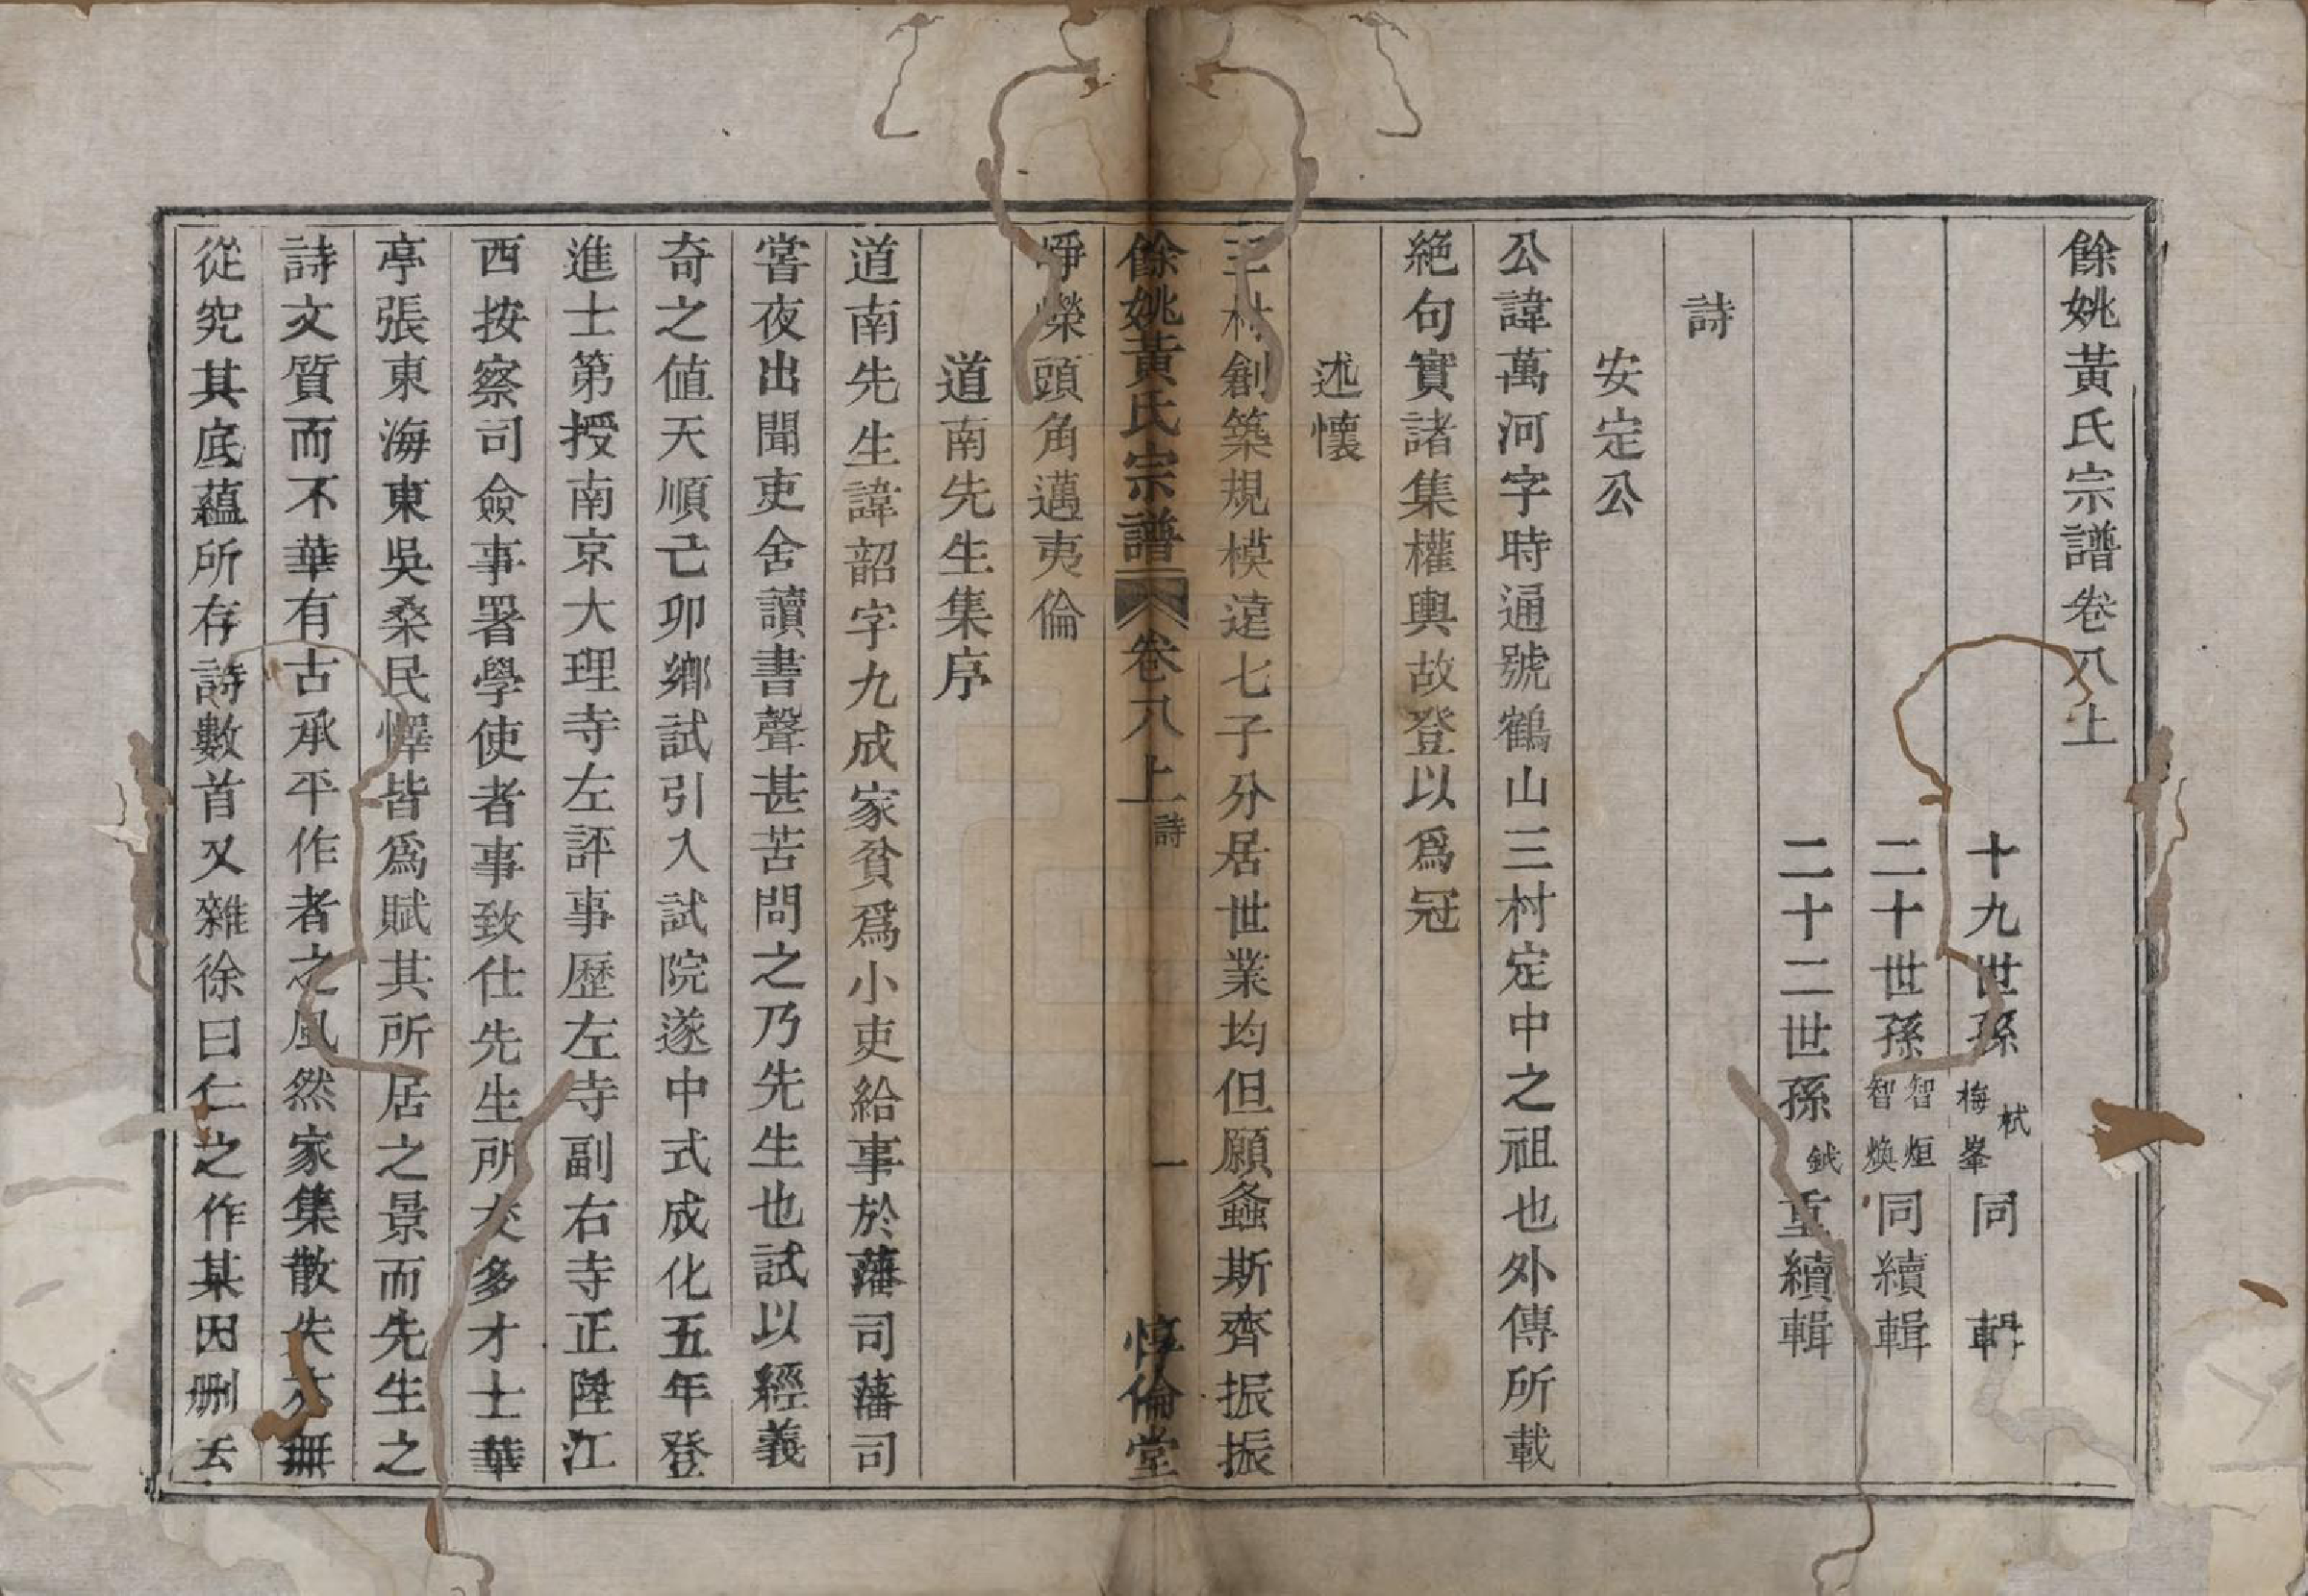 餘姚黃氏宗譜卷八上
十九世孫 栻 梅峯 同輯
二十世孫 智烜 智煥 同續輯
二十二世孫 鉞 重續輯
詩
安定公
公諱萬河字時通號鶴山三村定中之祖也外傳所載
絕句實諸集權輿故登以爲冠
述懷
三村創築規模遠七子分居世業均但願螽斯齊振振
餘姚黃氏宗譜 卷八上 詩 一 惇倫堂
崢嶸頭角邁夷倫
道南先生集序
道南先生諱韶字九成家貧爲小吏給事於藩司藩司
嘗夜出聞吏舍讀書聲甚苦問之乃先生也試以經義
奇之值天順己卯鄉試引入試院遂中式成化五年登
進士第授南京大理寺左評事歷左寺副右寺正陞江
西按察司僉事署學使者事致仕先生所交多才士華
亭張東海東吳桑民懌皆爲賦其所居之景而先生之
詩文質而不華有古承平作者之風然家集散失亦無
從究其底蘊所存詩數首又雜徐曰仁之作某因刪去